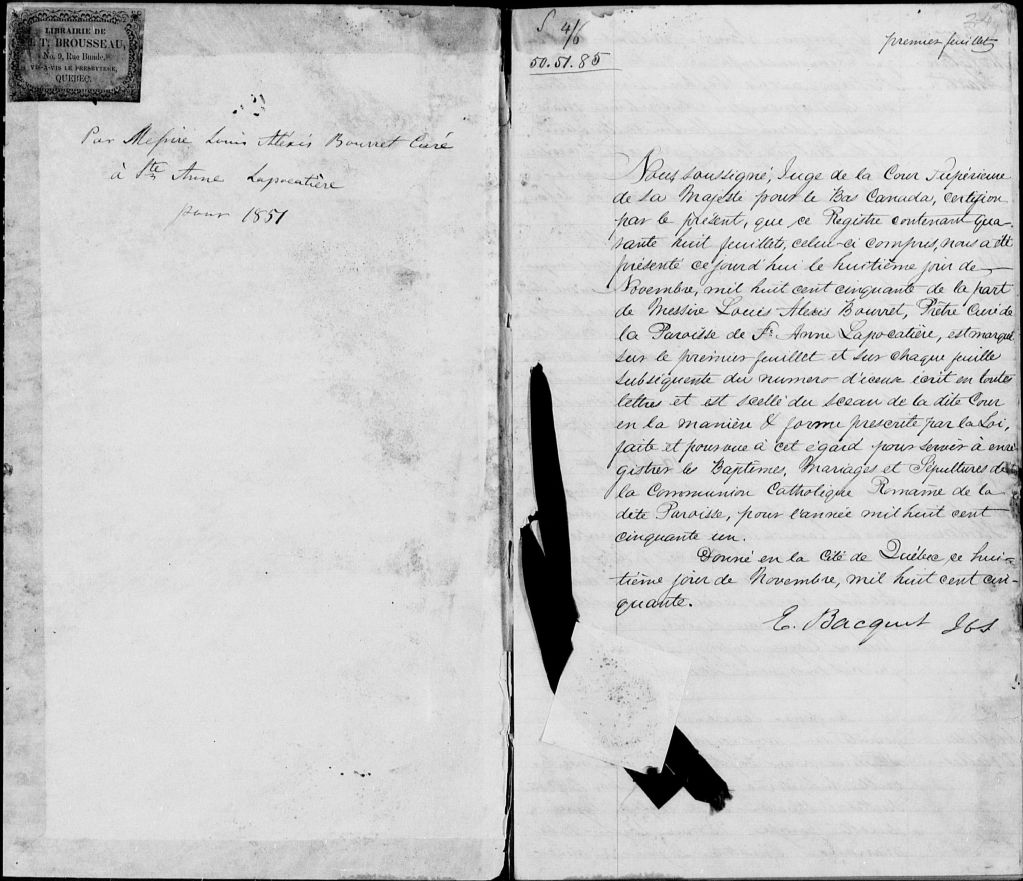 LIBRAIRIE DE
T. BROUSSEAU,
No. 9, Rue Buade,
VIS-À-VIS LE PRESBYTERE,
QUEBEC.
Par Messire Louis Alexis Bourret Curé
à Ste Anne Lapocatière
pour 1851
4/6
50.51.85
24
premier feuillet
Nous soussigné, Juge de la Cour Supérieure
de Sa Majesté pour le Bas Canada, certifion
par le présent, que ce Registre contenant qua-
rante huit feuillets, celui-ci compris, nous a été
présenté ce jourd'hui le huitième jour de
Novembre, mil huit cent cinquante de la part
de Messire Louis Alexis Bourret, Prêtre Curé de
la Paroisse de Ste Anne Lapocatière, est marqué
sur le premier feuillet et sur chaque feuille
subséquente du numero d'iceux écrit en toutes
lettres et est scellé du sceau de la dite Cour
en la manière & forme prescrite par la Loi,
faite et pourvue à cet égard pour servir à enre
gistrer les Baptêmes, Mariages et Sépultures de
la Communion Catholique Romaine de la
dite Paroisse, pour l'année mil huit cent
cinquante un.
Donné en la Cité de Québec ce hui-
tième jour de Novembre, mil huit cent cin-
quante.
E. Bacquet JCS